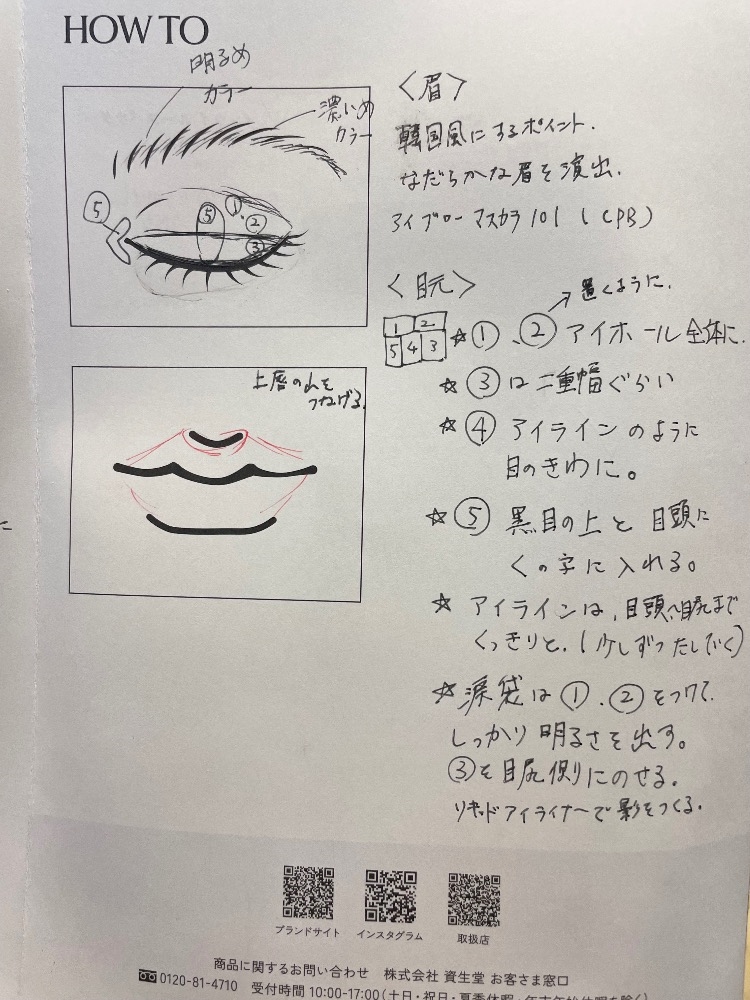 HOW TO
明るめ
カラー
濃いめ
カラー
⑤
⑤
①、②
③
上唇の山を
つなげる。
〈眉〉
韓国風にするポイント.
なだらかな眉を演出.
アイブローマスカラ101 (CPB)
〈目元〉
→置くように.
1 2
5 4 3
☆①、②アイホール全体に.
☆③は二重幅ぐらい
☆④アイラインのように
目のきわに。
☆⑤黒目の上と目頭に
くの字に入れる。
☆アイラインは、目頭〜目尻まで
くっきりと.(少しずつたしていく)
☆涙袋は①、②をつけて.
しっかり明るさを出す。
③を目尻側にのせる.
リキッドアイライナーで影をつくる.
ブランドサイト インスタグラム 取扱店
商品に関するお問い合わせ 株式会社 資生堂 お客さま窓口
0120-81-4710 受付時間 10:00-17:00(土日・祝日・夏季休暇・年末年始休暇を除く)
に